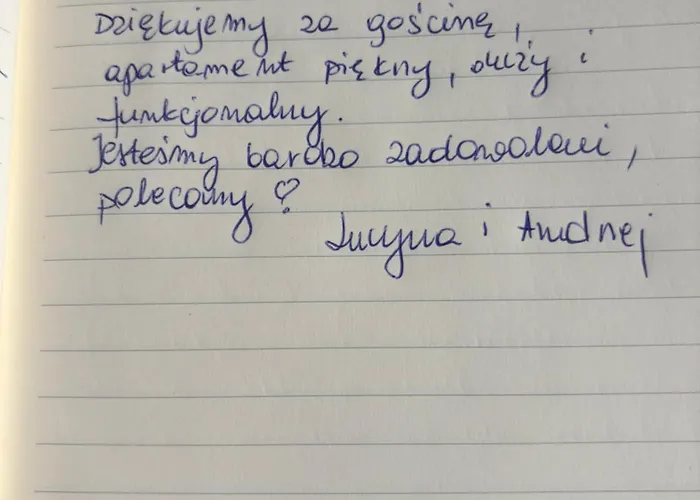 Dziękujemy za gościnę,
apartament piękny, duży i
funkcjonalny.
Jesteśmy bardzo zadowoleni,
polecamy
Lucyna i Andrzej